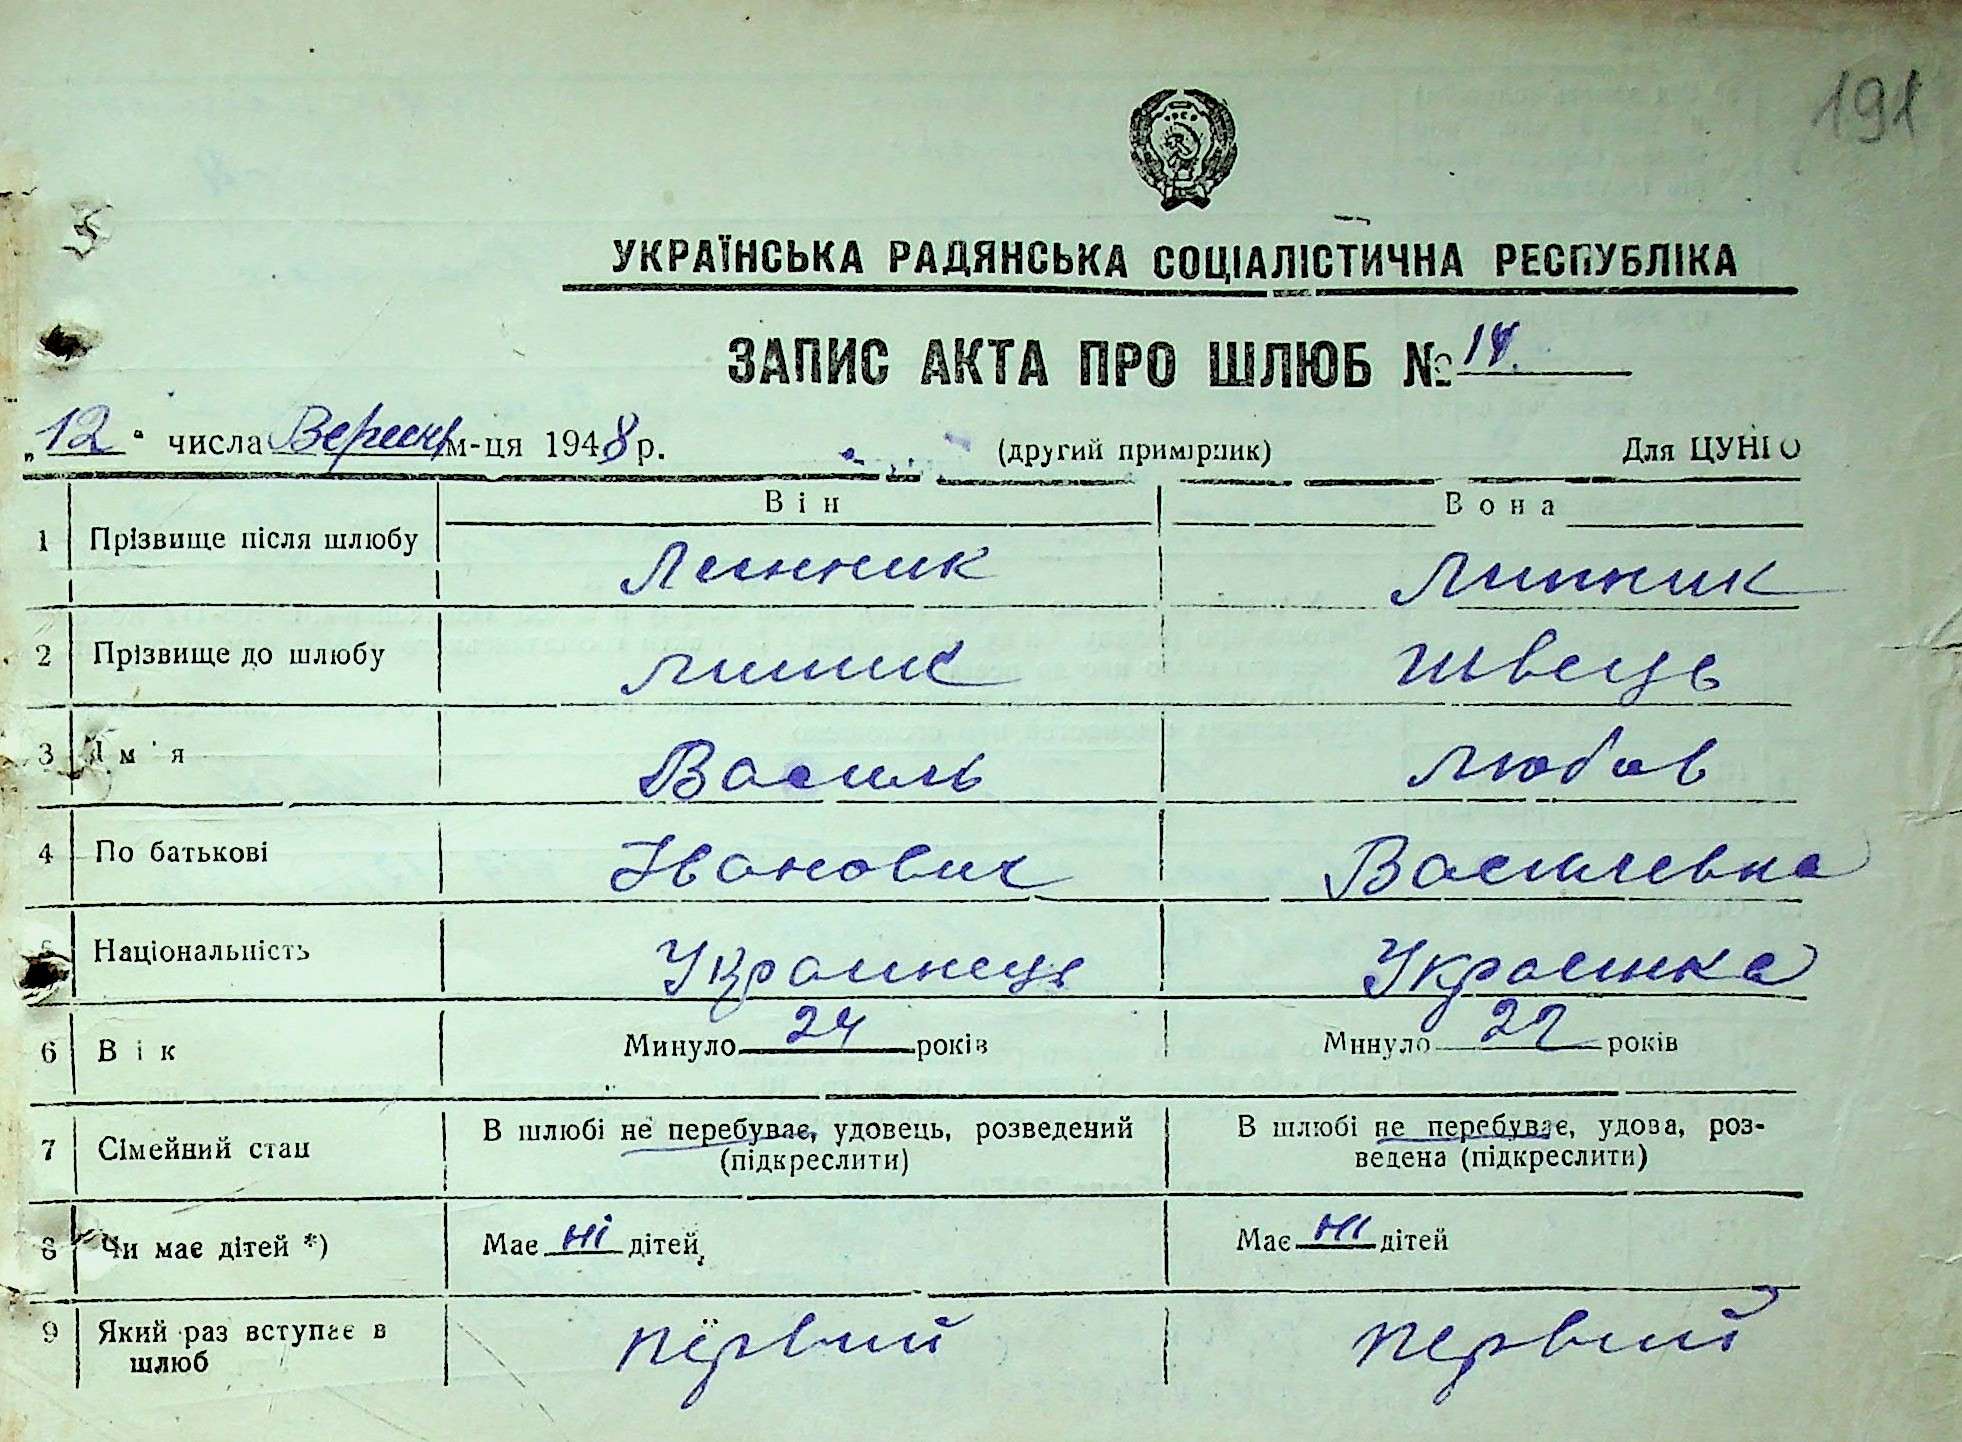 191
УКРАЇНСЬКА РАДЯНСЬКА СОЦІАЛІСТИЧНА РЕСПУБЛІКА
ЗАПИС АКТА ПРО ШЛЮБ № 14.
„12“ числа Вересня м-ця 1948 р. (другий примірник) Для ЦУНГО
Він Вона
1 Прізвище після шлюбу Линник Линник
2 Прізвище до шлюбу Линик Швець
3 Ім'я Василь Любов
4 По батькові Іванович Василевна
5 Національність Украинець Украинка
6 Вік Минуло 24 років Минуло 22 років
7 Сімейний стан В шлюбі не перебуває, удовець, розведений (підкреслити) В шлюбі не перебуває, удова, роз-
ведена (підкреслити)
8 Чи має дітей *) Має ні дітей Має ні дітей
9 Який раз вступає в шлюб первий первий